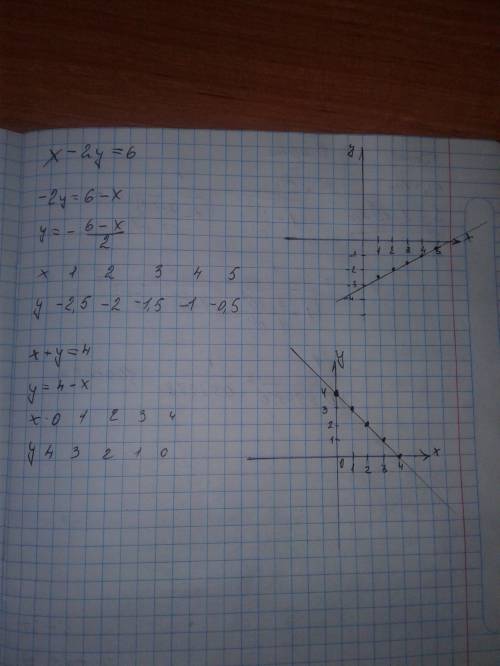 x - 2y = 6
-2y = 6 - x
y = - \frac{6 - x}{2}
x 1 2 3 4 5
y -2,5 -2 -1,5 -1 -0,5
y
x
1 2 3 4 5
-1
-2
-3
-4
x + y = 4
y = 4 - x
x 0 1 2 3 4
y 4 3 2 1 0
y
4
3
2
1
x
0 1 2 3 4